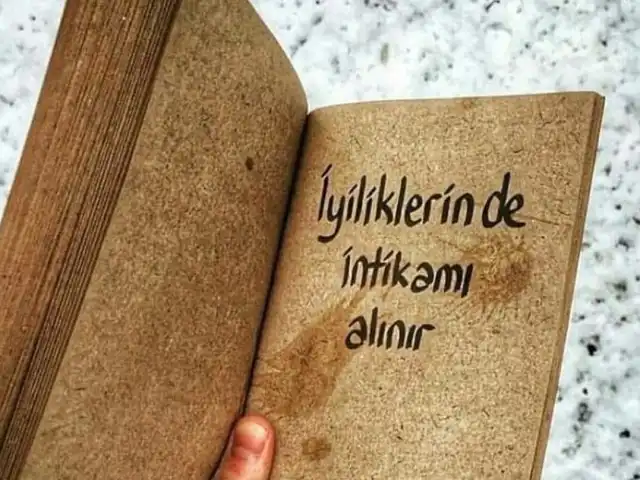 İyiliklerin de
intikamı
alınır